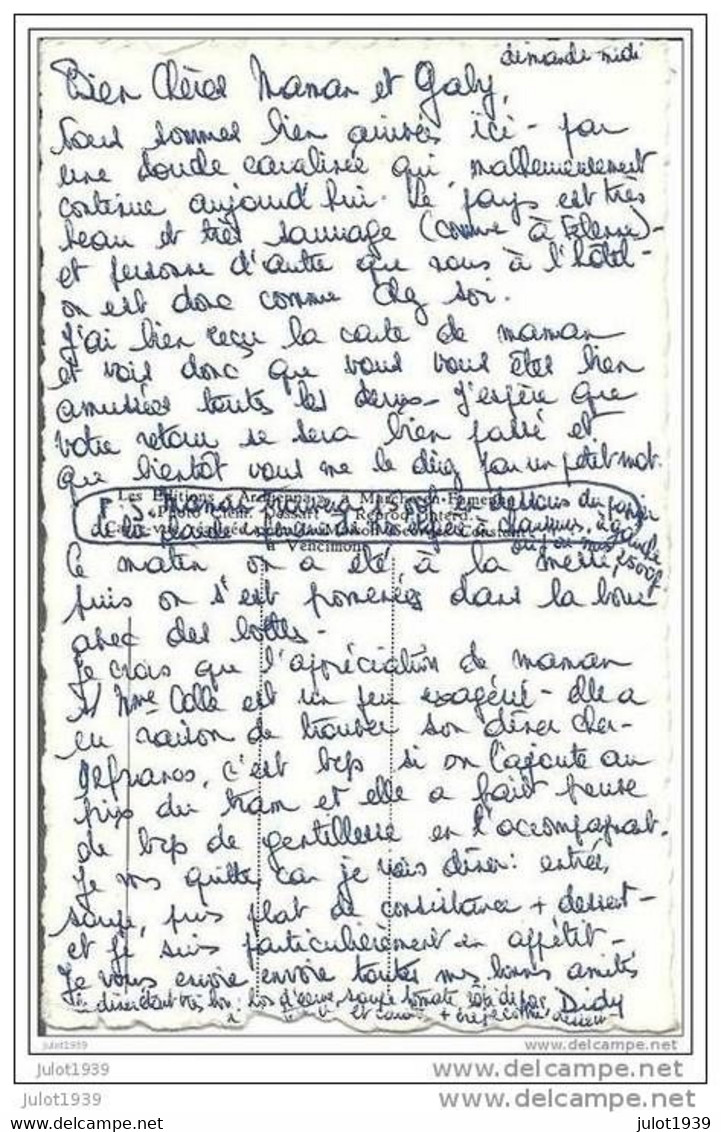 dimanche midi
Bien Chères Maman et Gaby,
Nous sommes bien arrivés ici - par
une doude cavalinée qui malheureusement
continue aujourd'hui. Le pays est très
beau et très sauvage (comme à
et personne d'autre que nous à l'hôtel -
on est donc comme chez soi.
J'ai bien reçu la carte de maman
et vois donc que vous vous êtes bien
amusées toutes les deux - J'espère que
votre retour se sera bien passé et
que bientôt vous me le direz par un petit mot.
Les Editions « Ardenna » à Marche-en-Famenne
P.S. Maman en dessous du papier
Photo Clém. Dessart - Reprod. interd.
de la à gauche
Maison Georges Constant
à Vencimont
2500f
Ce matin on a été à la messe,
puis on s'est promenés dans la boue
avec des bottes -
Je crois que l'appréciation de maman
Mme Colle est un peu exagéré - elle a
eu raison de trouver son dîner cher -
francs, c'est bcp si on l'ajoute au
prix du tram et elle a fait preuve
de bcp de gentillesse en l'accompagnant.
Je vs quitte, car je vais dîner: entrée,
soupe, puis plat de consistance + dessert -
et je suis particulièrement en appétit -
Je vous envoie envoie toutes mes bonnes amitiés
Didy
dîner était très bon: hors d'oeuvre, soupe tomate, rôti de porc
et + dessert -
julot1939
www.delcampe.net
julot1939
www.delcampe.net
julot1939
www.delcampe.net
julot1939
julot1939